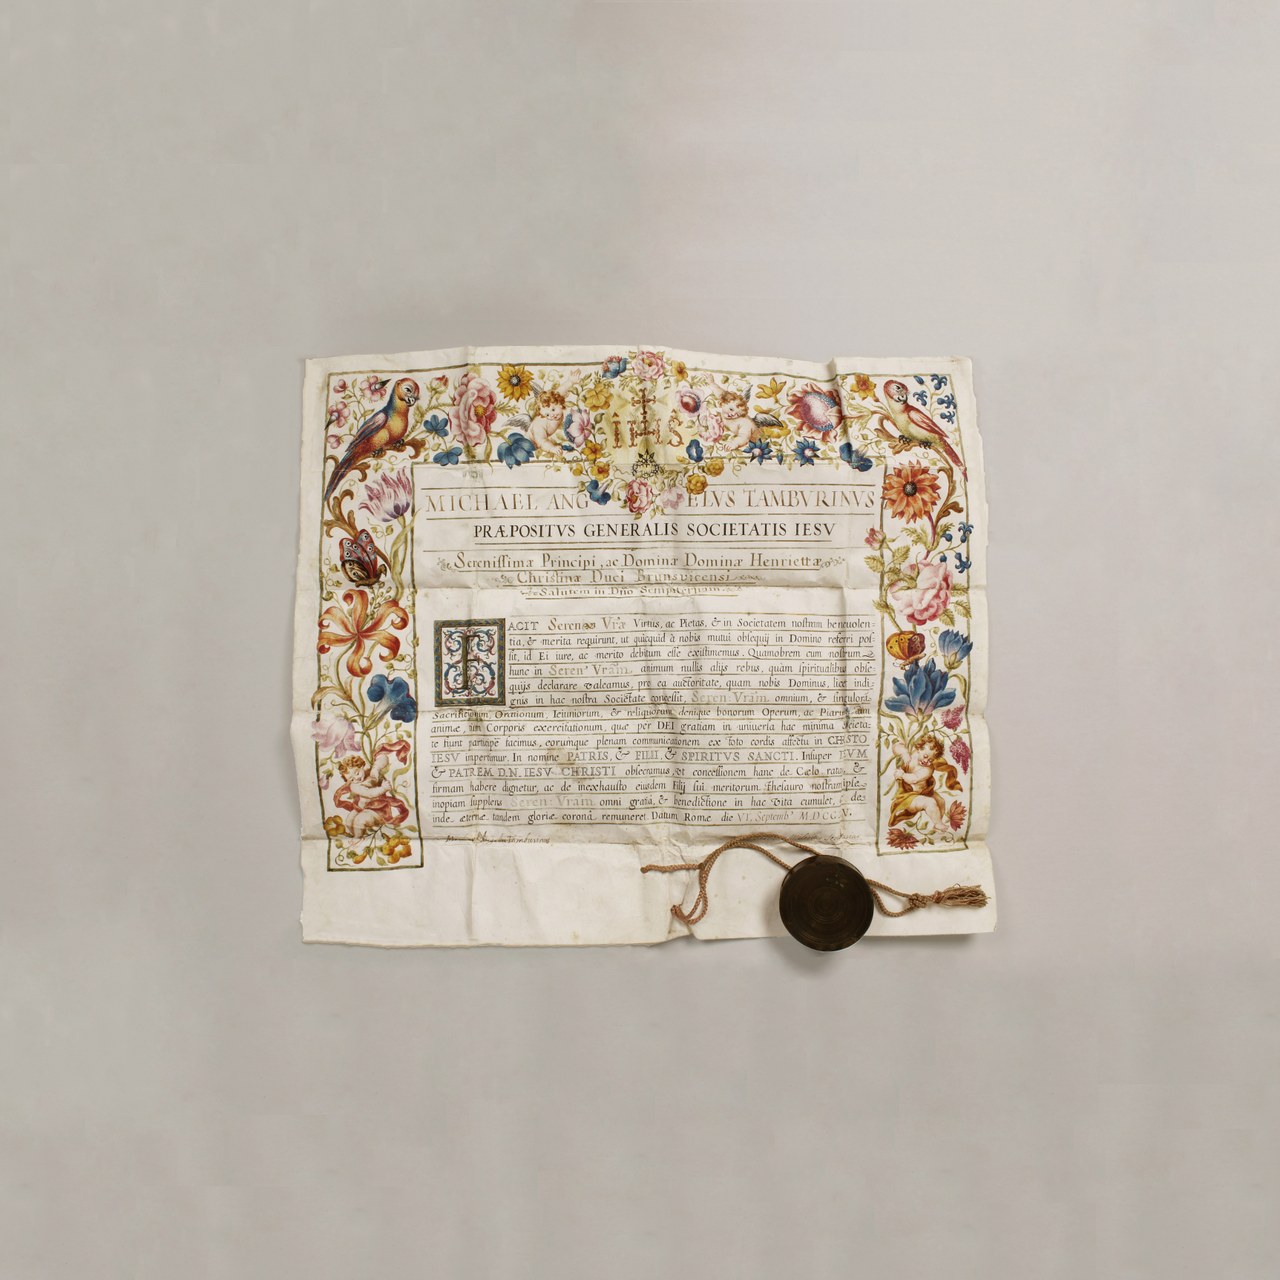 IHS
MICHAEL ANGELVS TAMBVRINVS
PRÆPOSITVS GENERALIS SOCIETATIS IESV
Serenissimæ Principi, ac Dominæ Dominæ Henriettæ
Christinæ Duci Brunsvicensi
Salutem in Dño Sempiternam
FACIT Serenæ Vræ Virtus, ac Pietas, & in Societatem nostram beneuolen-
tia, & merita requirunt, ut quicquid à nobis mutui obsequij in Domino referri pos-
sit, id Ei iure, ac merito debitum esse existimemus. Quamobrem cum nostrum
hunc in Seren: Vram animum nullis alijs rebus, quàm spiritualibus obse-
quijs declarare valeamus, pro ea auctoritate, quam nobis Dominus, licet indi-
gnis in hac nostra Societate concessit, Seren: Vram omnium, & singulorũ
Sacrificiorum, Orationum, Ieiuniorum, & reliquorum denique bonorum Operum, ac Piarum, tum
animæ, tum Corporis exercitationum, quæ per DEI gratiam in uniuersa hac minima Societa-
te fiunt participẽ facimus, eorumque plenam communicationem ex toto cordis affectu in CHRISTO
IESV impertimur. In nomine PATRIS, & FILII, & SPIRITVS SANCTI. Insuper DEVM
& PATREM D.N. IESV CHRISTI obsecramus, vt concessionem hanc de Cælo ratã, &
firmam habere dignetur, ac de inexhausto eiusdem Filij sui meritorum thesauro nostram ipse
inopiam supplens Seren: Vram omni gratia, & benedictione in hac vita cumulet, & de-
inde æternæ tandem gloriæ coronâ remuneret Datum Romæ die VI. Septemb: M.DCC.X.